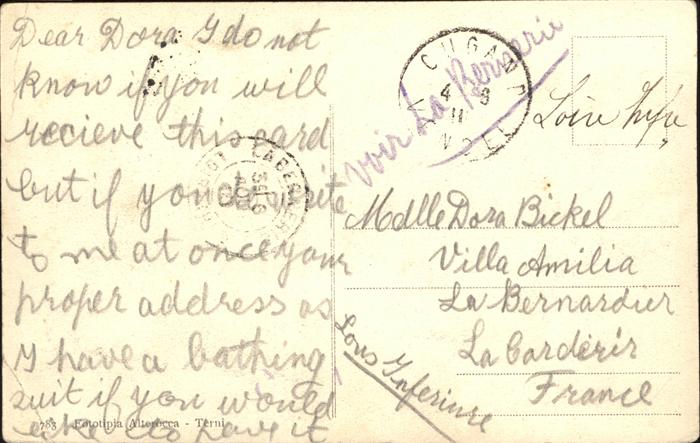 Dear Dora I do not
know if you will
recieve this card
but if you do write
to me at once your
proper address as
I have a bathing
suit if you would
like to have it
783 Fototipia Alterocca - Terni
CUGAND
4 - 9
11
voir La Bernerie
Loire Infre
Mdlle Dora Bickel
Villa Amilia
La Bernardier
La Carderir
France
Lous Inferiure